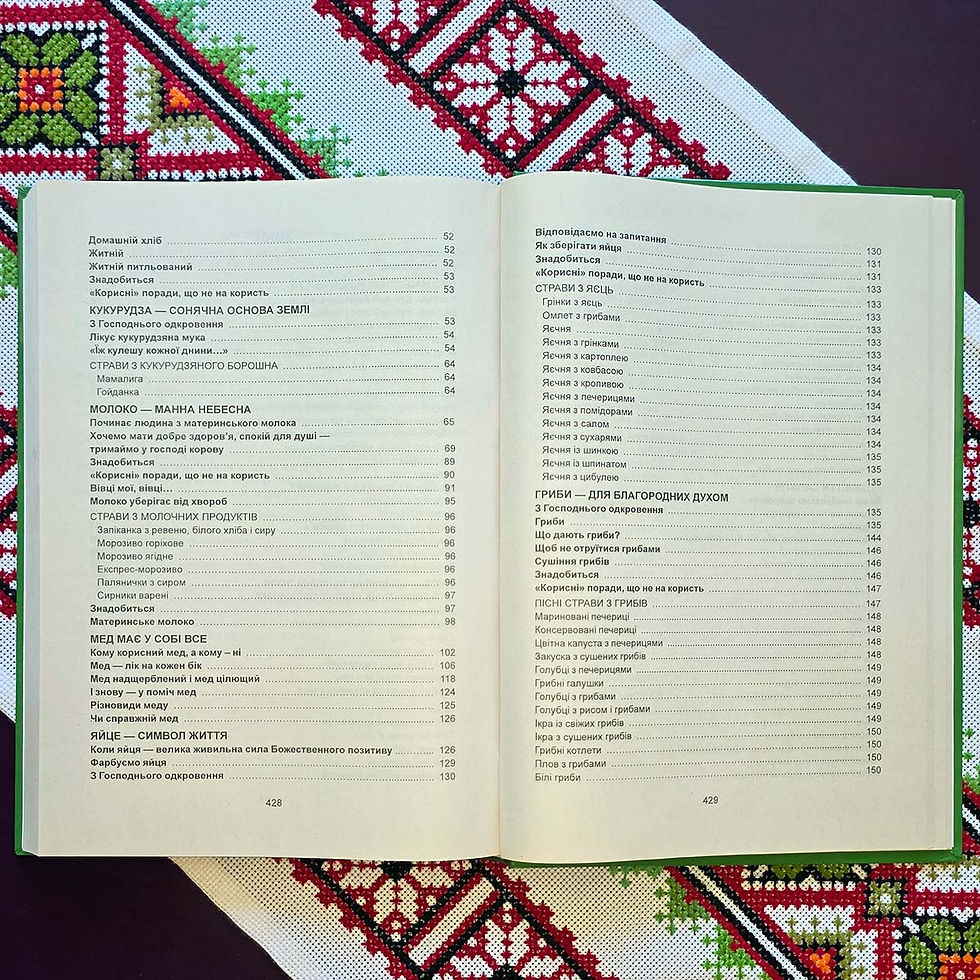 Домашній хліб ... 52
Житній ... 52
Житній питльований ... 52
Знадобиться ... 53
«Корисні» поради, що не на користь ... 53
КУКУРУДЗА — СОНЯЧНА ОСНОВА ЗЕМЛІ
З Господнього одкровення ... 53
Лікує кукурудзяна мука ... 54
«Їж кулешу кожної днини...» ... 54
СТРАВИ З КУКУРУДЗЯНОГО БОРОШНА ... 64
Мамалига ... 64
Гойданка ... 64
МОЛОКО — МАННА НЕБЕСНА
Починає людина з материнського молока ... 65
Хочемо мати добре здоров'я, спокій для душі —
тримаймо у господі корову ... 69
Знадобиться ... 89
«Корисні» поради, що не на користь ... 90
Вівці мої, вівці... ... 91
Молоко уберігає від хвороб ... 95
СТРАВИ З МОЛОЧНИХ ПРОДУКТІВ ... 96
Запіканка з ревеню, білого хліба і сиру ... 96
Морозиво горіхове ... 96
Морозиво ягідне ... 96
Експрес-морозиво ... 96
Палянички з сиром ... 96
Сирники варені ... 97
Знадобиться ... 97
Материнське молоко ... 98
МЕД МАЄ У СОБІ ВСЕ
Кому корисний мед, а кому – ні ... 102
Мед — лік на кожен бік ... 106
Мед надщерблений і мед цілющий ... 118
І знову — у поміч мед ... 124
Різновиди меду ... 125
Чи справжній мед ... 126
ЯЙЦЕ — СИМВОЛ ЖИТТЯ
Коли яйця — велика живильна сила Божественного позитиву ... 126
Фарбуємо яйця ... 129
З Господнього одкровення ... 130
428
Відповідаємо на запитання ...
Як зберігати яйця ... 130
Знадобиться ... 131
«Корисні» поради, що не на користь ... 131
СТРАВИ З ЯЄЦЬ ... 133
Грінки з яєць ... 133
Омлет з грибами ... 133
Яєчня ... 133
Яєчня з грінками ... 133
Яєчня з картоплею ... 134
Яєчня з ковбасою ... 134
Яєчня з кропивою ... 134
Яєчня з печерицями ... 134
Яєчня з помідорами ... 134
Яєчня з салом ... 134
Яєчня з сухарями ... 134
Яєчня із шинкою ... 135
Яєчня із шпинатом ... 135
Яєчня з цибулею ... 135
ГРИБИ — ДЛЯ БЛАГОРОДНИХ ДУХОМ
З Господнього одкровення ... 135
Гриби ... 135
Що дають гриби? ... 144
Щоб не отруїтися грибами ... 146
Сушіння грибів ... 146
Знадобиться ... 146
«Корисні» поради, що не на користь ... 147
ПІСНІ СТРАВИ З ГРИБІВ ... 147
Мариновані печериці ... 148
Консервовані печериці ... 148
Цвітна капуста з печерицями ... 148
Закуска з сушених грибів ... 148
Голубці з печерицями ... 149
Грибні галушки ... 149
Голубці з грибами ... 149
Голубці з рисом і грибами ... 149
Ікра із свіжих грибів ... 149
Ікра з сушених грибів ... 150
Грибні котлети ... 150
Плов з грибами ... 150
Білі гриби ... 150
429